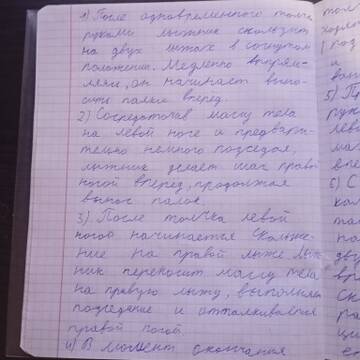 1) После одновременного толчка
руками лыжник скользит
на двух лыжах в согнутом
положении. Медленно выпрям-
ляясь, он начинает выно-
сить палки вперед.
2) Сосредоточив массу тела
на левой ноге и предвари-
тельно немного подседая,
лыжник делает шаг правой
ногой вперед, продолжая
вынос палок.
3) После толчка левой
ногой начинается скольже-
ние на правой лыже. Лыж-
ник переносит массу тела
на правую лыжу, выполняя
подседание и отталкивается
правой ногой.
4) В момент окончания
5) П
6) С